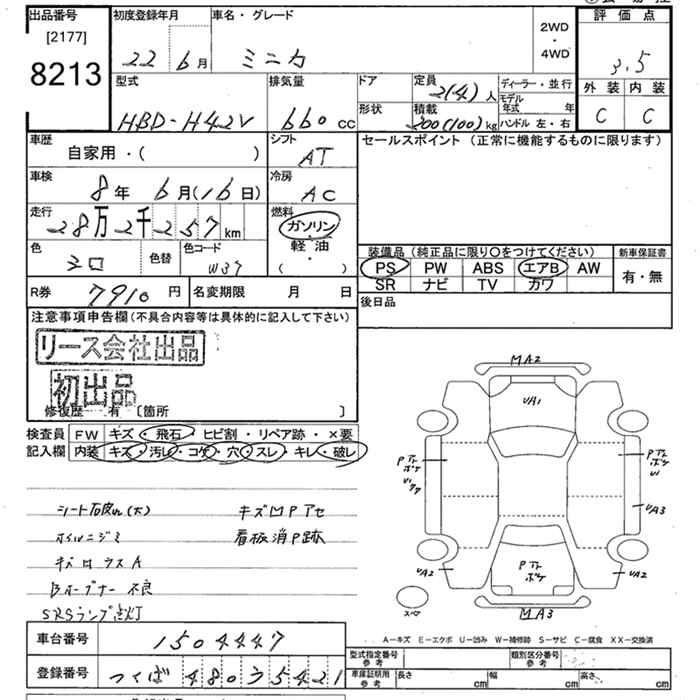 出品番号
[2177]
8213
初度登録年月
22 6 月
車名・グレード
ミニカ
2WD
・
4WD
評価点
3.5
外装 内装
C C
型式
HBD-H42V
排気量
660 cc
ドア
形状
定員
2(4) 人
積載
200(100) kg
ディーラー・並行
モデル年式 年
ハンドル 左・右
車歴
自家用・( )
シフト
AT
セールスポイント (正常に機能するものに限ります)
車検
8 年 6 月(16 日)
冷房
AC
走行
28万2千257 km
燃料
ガソリン
軽・油
( ・ )
色
シロ
色替
色コード
W37
装備品 (純正品に限り〇をつけてください)
PS PW ABS エアB AW
SR ナビ TV カワ
新車保証書
有・無
R券 7910 円
名変期限 月 日
後日品
注意事項申告欄(不具合内容等は具体的に記入して下さい)
リース会社出品
初出品
修復歴 有 〔箇所 〕
検査員
記入欄
FW キズ・飛石・ヒビ割・リペア跡・×要
内装 キズ・汚レ・コゲ・穴・スレ・キレ・破レ
シート破れ(大)
ホイルシミ
キズロウスA
Bオープナー不良
SRSランプ点灯
キズMPアセ
看板消P跡
MA2
UA1
Pアト
ボケ
Pアト
ボケ
UA3
UA2
UA2
Pアト
ボケ
スペア
MA3
車台番号 1504447
登録番号 つくば 480 う 5421
A−キズ E−エクボ U−凹み W−補修跡 S−サビ C−腐食 XX−交換済
型式指定番号
参考
類別区分番号
参考
車庫証明用
参考
長さ cm 幅 cm 高さ cm